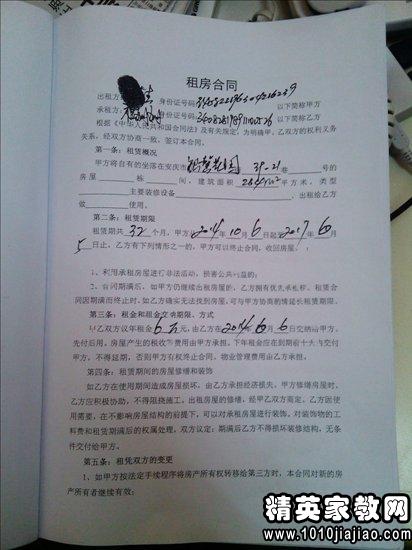 租房合同
出租方 身份证号码 以下简称甲方
承租方: 身份证号码 以下简称乙方
根据《中华人民共和国合同法》及有关规定,为明确甲、乙双方的权利义务
关系,经双方协商一致,签订本合同。
第一条:租赁概况
甲方将自有的坐落在安庆市 39-21 巷 号的
房屋 栋 间,建筑面积 平方米、类型
主要装修设备 ,出租给乙方
做 使用。
第二条:租赁期限
租赁期共 32 个月,甲方从 2014 年 10 月 6 日起至 2017 年 6 月
5 日止。乙方有下列情形之一的,甲方可以终止合同,收回房屋。
1、利用承租房屋进行非法活动,损害公共利益的;
2、合同期满后,如甲方仍继续出租房屋的,乙方拥有优先承租权。租赁合
同因期满而终止时,如乙方确实无法找到房屋,可与甲方协商酌情延长租赁期限。
第三条:租金和租金交纳期限、方式
甲乙双方议年租金 元,由乙方在 2014 年 月 6 日交纳给甲方。
先付后用,房屋产生的税收等费用由甲方承担。下年租金应在到期前十天内交付
甲方,不得延期,否则甲方有权终止合同。物业管理费用由乙方承担。
第四条:租赁期间的房屋修缮和装饰
如乙方在使用期间造成房屋损坏,由乙方承担经济损失。甲方修缮房屋时,
乙方应积极协助,不得阻挠施工。出租房屋的修缮,经甲乙双方商定。乙方因使
用需要,在不影响房屋结构的前提下,可以对承租房屋进行装饰。对装饰物的工
料费和租赁期满后的权属处理,双方议定:期满后乙方不得损坏装修结构,无条
件交付给甲方。
第五条:租凭双方的变更
1、如甲方按法定手续程序将房产所有权转移给第三方时,本合同对新的房
产所有者继续有效;
精英家教网
www.1010jiajiao.com